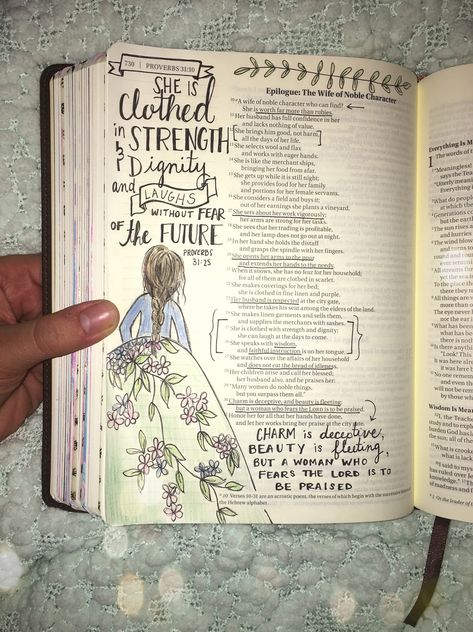 730 | PROVERBS 31:10
SHE IS
Clothed
in STRENGTH
& Dignity
and LAUGHS
WITHOUT FEAR
OF the FUTURE
PROVERBS
31:25
Epilogue: The Wife of Noble Character
10 A wife of noble character who can find?
She is worth far more than rubies.
11 Her husband has full confidence in her
and lacks nothing of value.
12 She brings him good, not harm,
all the days of her life.
13 She selects wool and flax
and works with eager hands.
14 She is like the merchant ships,
bringing her food from afar.
15 She gets up while it is still night;
she provides food for her family
and portions for her female servants.
16 She considers a field and buys it;
out of her earnings she plants a vineyard.
17 She sets about her work vigorously;
her arms are strong for her tasks.
18 She sees that her trading is profitable,
and her lamp does not go out at night.
19 In her hand she holds the distaff
and grasps the spindle with her fingers.
20 She opens her arms to the poor
and extends her hands to the needy.
21 When it snows, she has no fear for her household;
for all of them are clothed in scarlet.
22 She makes coverings for her bed;
she is clothed in fine linen and purple.
23 Her husband is respected at the city gate,
where he takes his seat among the elders of the land.
24 She makes linen garments and sells them,
and supplies the merchants with sashes.
25 She is clothed with strength and dignity;
she can laugh at the days to come.
26 She speaks with wisdom,
and faithful instruction is on her tongue.
27 She watches over the affairs of her household
and does not eat the bread of idleness.
28 Her children arise and call her blessed;
her husband also, and he praises her:
29 "Many women do noble things,
but you surpass them all."
30 Charm is deceptive, and beauty is fleeting;
but a woman who fears the LORD is to be praised.
31 Honor her for all that her hands have done,
and let her works bring her praise at the city gate.
CHARM is deceptive,
BEAUTY is fleeting,
BUT A WOMAN WHO
FEARS THE LORD IS TO
BE PRAISED
a 10 Verses 10-31 are an acrostic poem, the verses of which begin with the successive
the Hebrew alphabet.
Everything Is M
1 The words of
"Meaningless!
says the Teac
"Utterly meani
Everything
What do peopl
at which the
Generations c
but the earth
The sun rises a
and hurries
The wind blow
and turns to
round and
ever return
All streams
yet the sea
To the place
there they
All things are
more than
The eye never
nor the ear
What has been
what has be
there is no
Is there anyt
"Look! This
It was here al
it was here
No one reme
and even t
will not be
by those w
Wisdom Is Mea